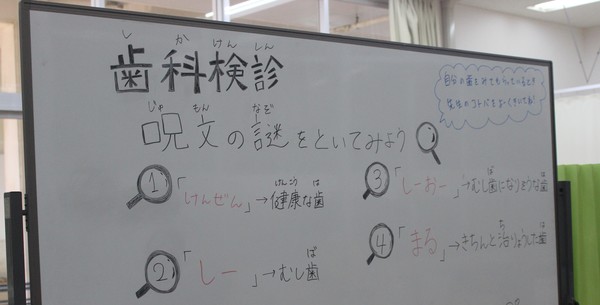 しかけんしん
歯科検診
じゅもんなぞ
呪文の謎をといてみよう
自分の歯をみてもらっているとき
先生のコトバをよくきいてね!
①「けんぜん」→健康な歯
けんこう は
②「しー」→むし歯
ば
③「しーおー」→むし歯になりそうな歯
ば は
④「まる」→きちんと治りょうした歯
ち は